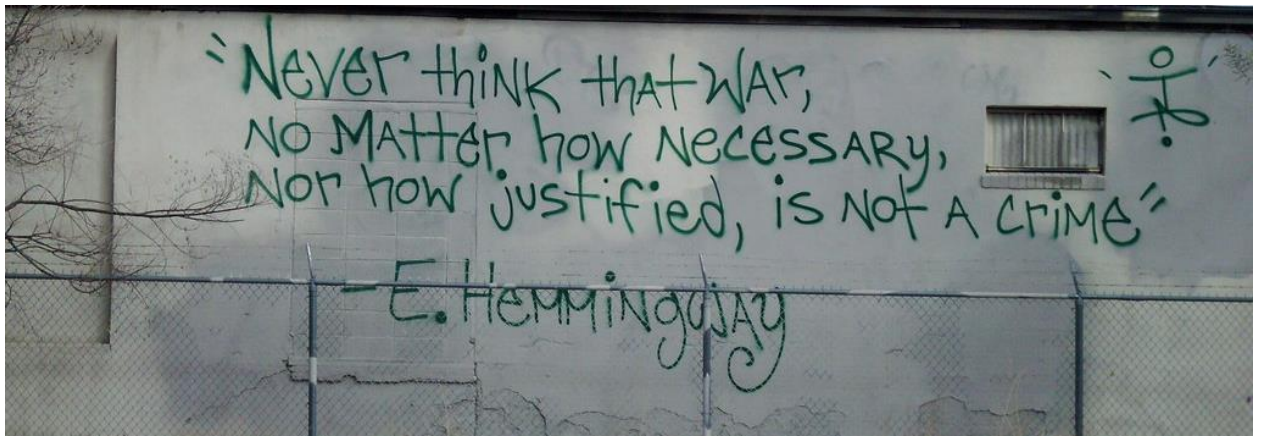 "Never think that war,
no matter how necessary,
nor how justified, is not a crime"
-E. Hemmingway